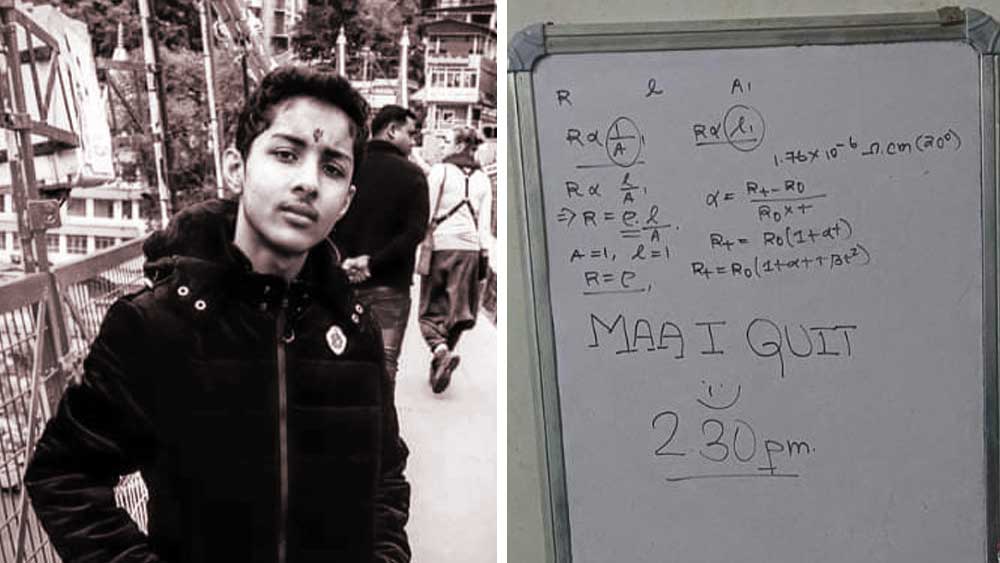 R l A1
R∝ 1/A, R∝ l1
1.76×10⁻⁶ Ω.cm (20°)
R ∝ l/A,
⇒ R = ρ.l/A.
A=1, l=1
R=ρ,
α = Rt-R0/R0×t
Rt = R0(1+αt)
Rt=R0(1+αt+βt²)
MAA I QUIT
2.30pm.